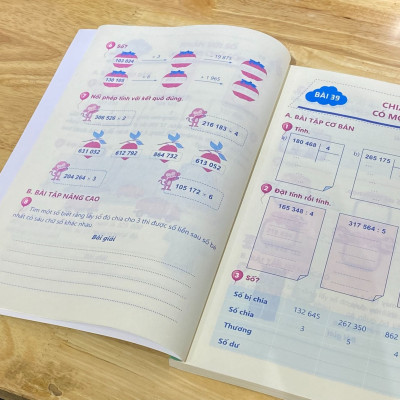 6 Số?
193 024
× 3
− 19 875
138 108
÷ 6
+ 1 963
7 Nối phép tính với kết quả đúng.
306 526 × 2
216 183 × 4
631 052
612 792
864 732
613 052
204 264 × 3
105 172 × 6
B. BÀI TẬP NÂNG CAO
Tìm một số biết rằng lấy số đó chia cho 3 thì được số liền sau số bé
nhất có sáu chữ số khác nhau.
Bài giải
BÀI 39
CHIA
CÓ MỘ
A. BÀI TẬP CƠ BẢN
1 Tính.
a)
180 468
4
b)
265 175
2 Đặt tính rồi tính.
165 348 : 4
317 564 : 5
3 Số?
Số bị chia
132 645
267 350
862
Số chia
3
5
4
Thương
Số dư